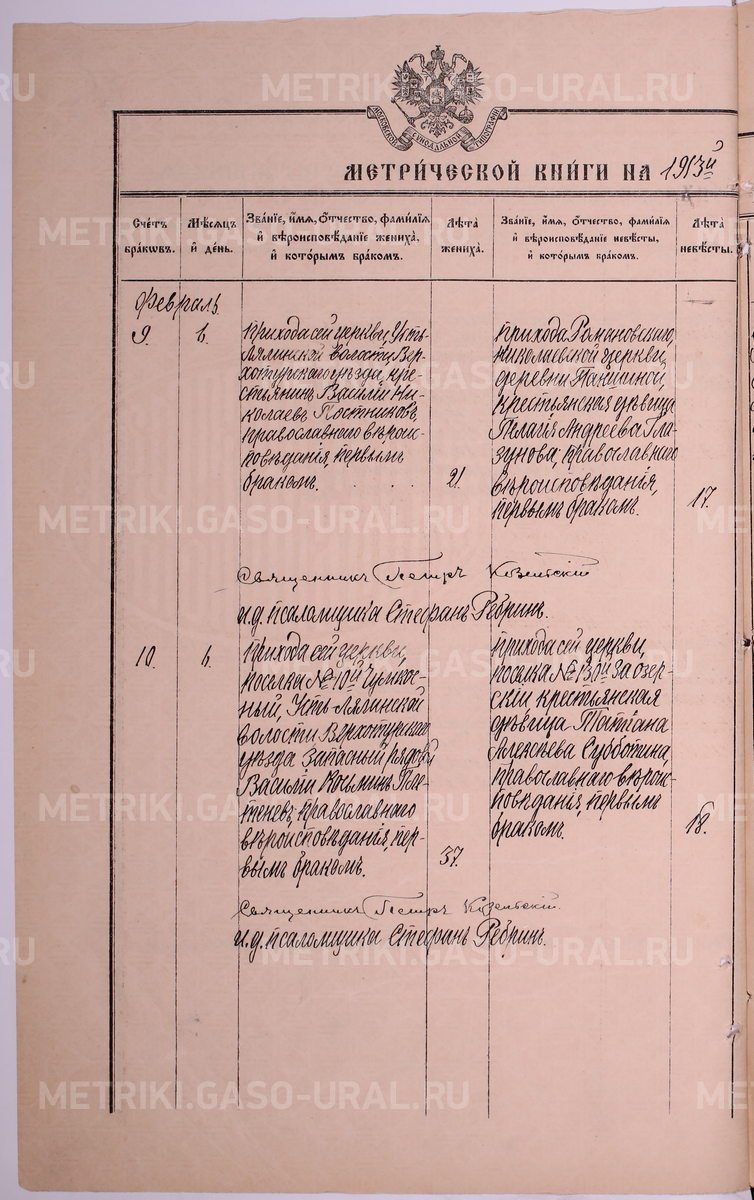 МОСКОВСКОЙ СѴНОДАЛЬНОЙ ТИПОГРАФІИ
МЕТРИ́ЧЕСКОЙ КНИ́ГИ НА 1913й
Сче́тъ бра́кωвъ.
Мѣ́сяцъ и҆ де́нь.
Зва́нїе, и҆́мя, ѻ҆́тчество, фами́лїя и҆ вѣроисповѣ́данїе жениха̀, и҆ кото́рымъ бра́комъ.
Лѣ́та жениха̀.
Зва́нїе, и҆́мя, ѻ҆́тчество, фами́лїя и҆ вѣроисповѣ́данїе невѣ́сты, и҆ кото́рымъ бра́комъ.
Лѣ́та невѣ́сты.
Февраль.
9. 6.
Прихода сей церкви, Усть-
Лялинской волости, Вер-
хотурскаго уѣзда, кре-
стьянинъ Василій Ни-
колаевъ Постниковъ,
православнаго вѣроис-
повѣданія, первымъ
бракомъ. . . . .
21.
Прихода Романовской,
Николаевской церкви,
деревни Паниной,
крестьянская дѣвица
Пелагія Андреева Гла-
зунова, православнаго
вѣроисповѣданія,
первымъ бракомъ.
17.
Священникъ Петръ
и.д. псаломщика Стефанъ Ребринъ.
10. 6.
Прихода сей церкви,
поселка №10й
Усть-Лялинской
волости Верхотурскаго
уѣзда запасный рядовой
Василій Косьминъ
православнаго
вѣроисповѣданія, пер-
вымъ бракомъ.
37.
Прихода сей церкви,
поселка №13й Заозер-
скій крестьянская
дѣвица Татіана
Алексѣева Субботина,
православнаго вѣроис-
повѣданія, первымъ
бракомъ.
18.
Священникъ Петръ
и.д. псаломщика Стефанъ Ребринъ.
METRIKI.GASO-URAL.RU